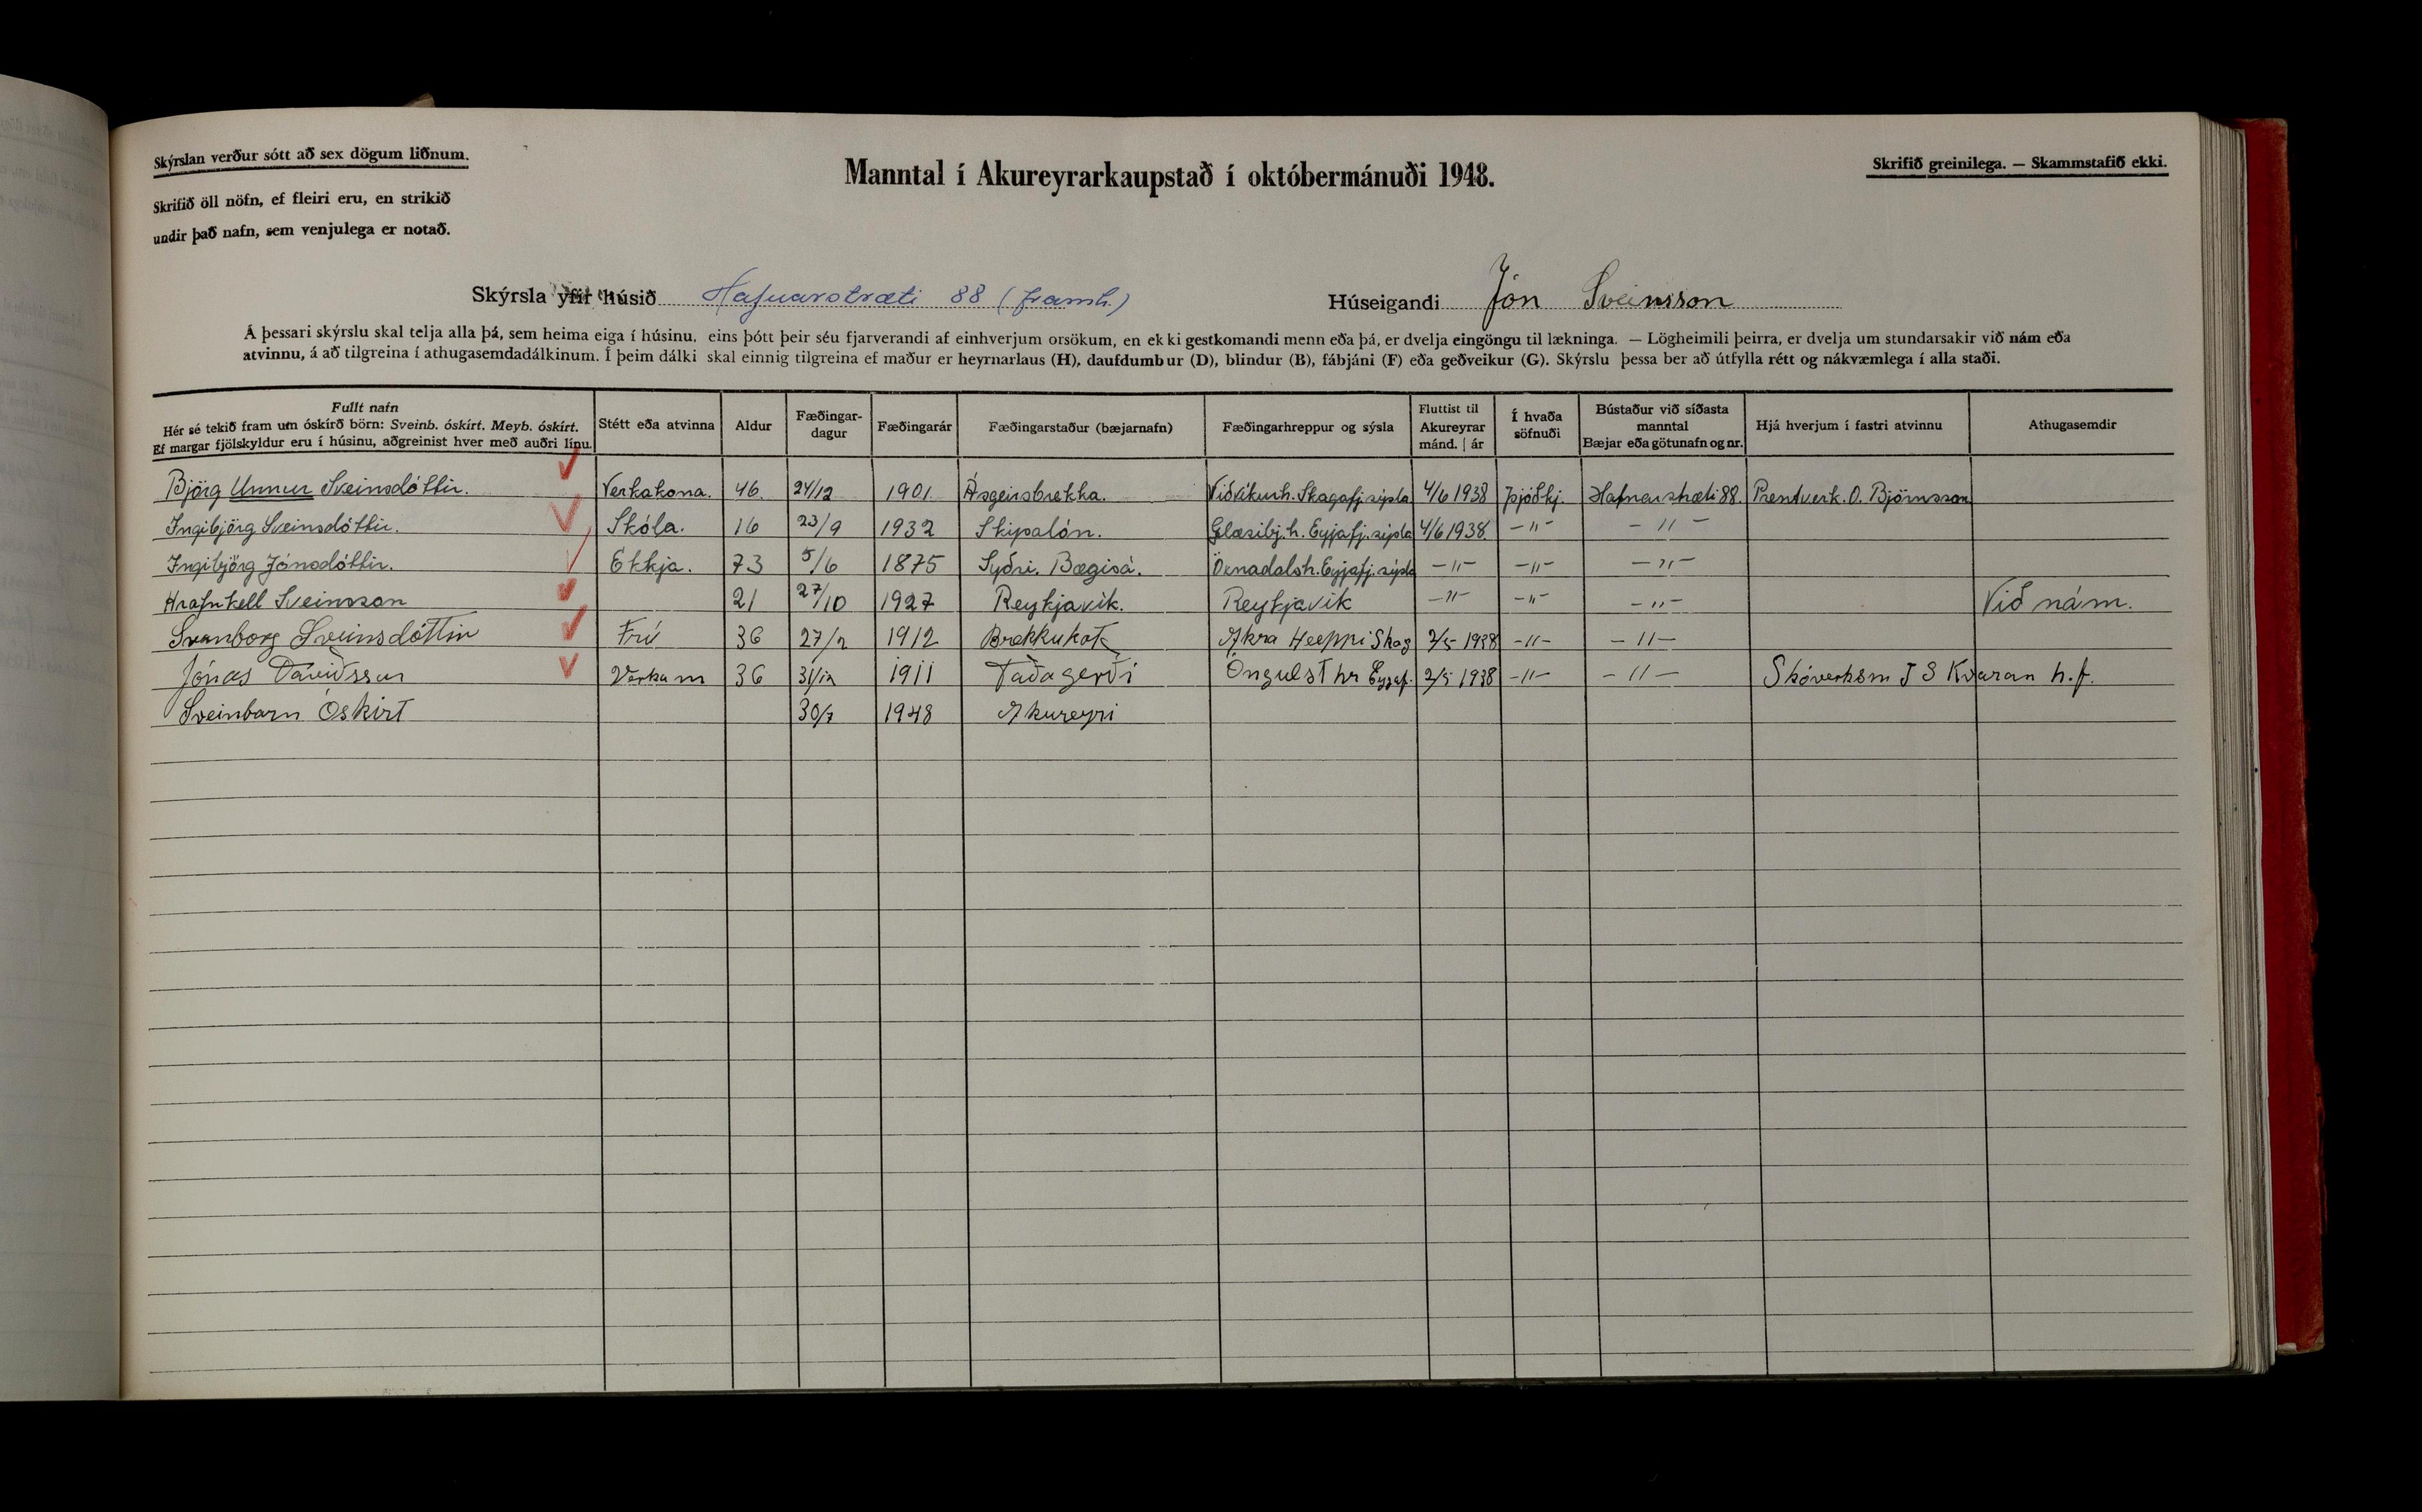 Skýrslan verður sótt að sex dögum liðnum.
Skrifið öll nöfn, ef fleiri eru, en strikið
undir það nafn, sem venjulega er notað.
Manntal í Akureyrarkaupstað í októbermánuði 1948.
Skrifið greinilega. — Skammstafið ekki.
Skýrsla yfir húsið Hafnarstræti 88 (framh.) Húseigandi Jón Sveinsson
Á þessari skýrslu skal telja alla þá, sem heima eiga í húsinu, eins þótt þeir séu fjarverandi af einhverjum orsökum, en ekki gestkomandi menn eða þá, er dvelja eingöngu til lækninga. — Lögheimili þeirra, er dvelja um stundarsakir við nám eða
atvinnu, á að tilgreina í athugasemdadálkinum. Í þeim dálki skal einnig tilgreina ef maður er heyrnarlaus (H), daufdumbur (D), blindur (B), fábjáni (F) eða geðveikur (G). Skýrslu þessa ber að útfylla rétt og nákvæmlega í alla staði.
Fullt nafn
Hér sé tekið fram um óskírð börn: Sveinb. óskírt. Meyb. óskírt.
Ef margar fjölskyldur eru í húsinu, aðgreinist hver með auðri línu.
Stétt eða atvinna
Aldur
Fæðingar-
dagur
Fæðingarár
Fæðingarstaður (bæjarnafn)
Fæðingarhreppur og sýsla
Fluttist til
Akureyrar
mánd. | ár
Í hvaða
söfnuði
Bústaður við síðasta
manntal
Bæjar eða götunafn og nr.
Hjá hverjum í fastri atvinnu
Athugasemdir
Björg Unnur Sveinsdóttir. Verkakona. 46. 24/12 1901 Ásgeirsbrekka. Viðvíkurh. Skagafj.sýsla 4/6 1938 Þjóðkj. Hafnarstræti 88. Prentverk. O. Björnsson
Ingibjörg Sveinsdóttir. Skóla. 16 23/9 1932 Skipalón. Glæsibj.h. Eyjafj.sýsla 4/6 1938. -"- -"-
Ingibjörg Jónsdóttir. Ekkja. 73 5/6 1875 Syðri. Bægisá. Öxnadalsh. Eyjafj.sýsla -"- -"- -"-
Hrafnkell Sveinsson 21 27/10 1927 Reykjavík. Reykjavík -"- -"- -"- Við nám.
Svanborg Sveinsdóttir Frú 36 27/2 1912 Brekkukot Akra Hreppi Skag 2/5 1938 -"- -"-
Jónas Davíðsson Verkam 36 31/12 1911 Taðagerði Öngulst hr Eyjaf. 2/5 1938 -"- -"- Skóverksm J S Kvaran h.f.
Sveinbarn Óskírt 30/7 1948 Akureyri